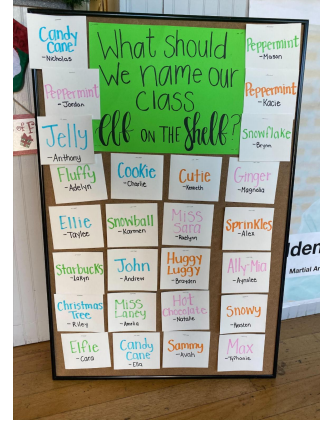 What Should
We name our
class
Elf ON THE Shelf?
Candy
Cane
-Nicholas
Peppermint
-Jordan
Jelly
-Anthony
Peppermint
Peppermint
-Kacie
Snowflake
-Brynn
Fluffy
-Adelyn
Cookie
-Charlie
Cutie
-Kenneth
Ginger
-Magnolia
Ellie
-Taylee
Snowball
-Karmen
Miss
Sara
-Raelynn
Sprinkles
-Alex
Starbucks
John
-Andrew
Huggy
Luggy
-Brayden
Ally-Mia
-Aynslee
Christmas
Tree
-Riley
Miss
Laney
-Amelia
Hot
Chocolate
-Natalie
Snowy
-Easton
Elfie
-Cara
Candy
Cane
-Ella
Sammy
-Avah
Max
lden
Martial Ar